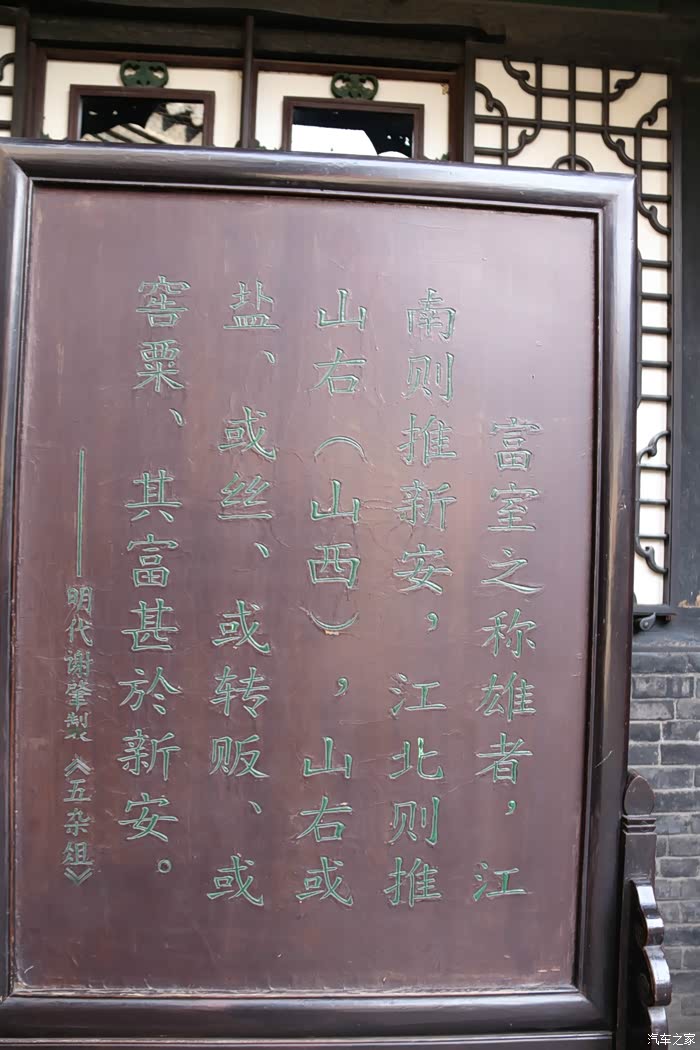 富室之称雄者，江
南则推新安，江北则推
山右（山西），山右或
盐、或丝、或转贩、或
窖粟、其富甚於新安。
——明代谢肇製《五杂组》
汽车之家